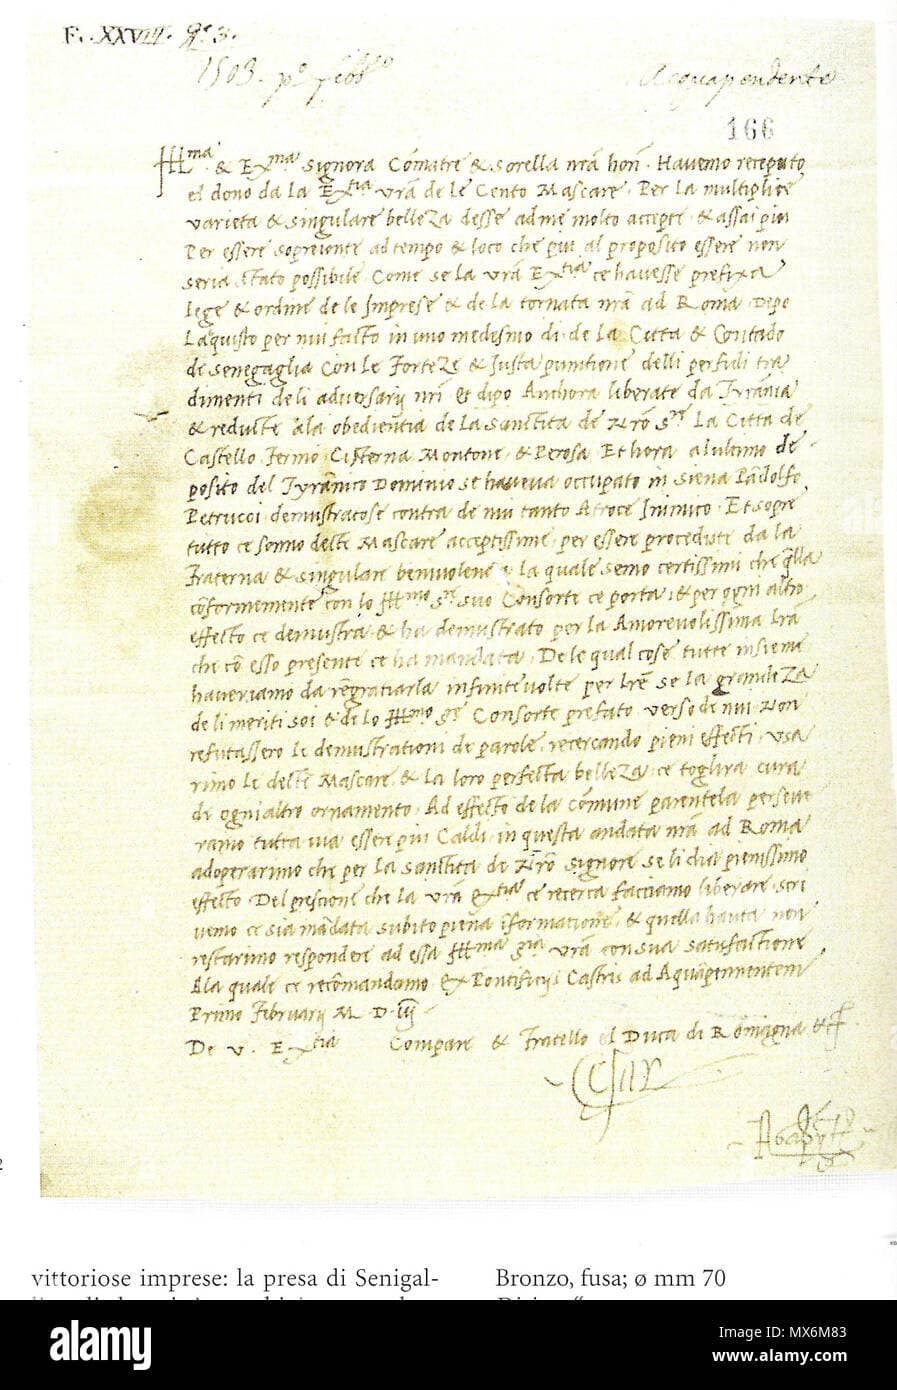 F. XXVII. 9.e 3.
1503. p.o febb.o
Acquapendente
166
Ill.ma & Ex.ma Signora Comatre & Sorella nrã hon. Havemo receputo
el dono da la Ex.tia vrã de le Cento Mascare. Per la multiplice
varieta & singulare belleza desse ad me molto accepte & assai piu
Per essere sopreionte ad tempo & loco che piu al proposito essere non
seria stato possibile Come se la vrã Ex.tia ce havesse prefixa
lege & ordine de le Imprese & de la tornata nrã ad Roma. Depo
Laquisto per nui facto in uno medesmo di. de la Citta & Contado
de Senegaglia con Le Forteze & Justa punitione delli perfidi tra
dimenti deli adversarij nri Et dipo Anchora liberate da Tyrãnia
& reducte a la obedientia de La Sanctita de Nrõ S.re La Citta de
Castello. Fermo. Cisterna Montone & Perosa Et hora al ultimo de
posito del Tyrãnico Dominio se haveva occupato in Siena Pãdolfo
Petrucci demustratose contra de nui tanto Atroce Inimico. Et sopre
tutto ce sonno decte Mascare acceptissime. per essere procediste da la
Fraterna & singulare benivolene la quale semo certissimi che qlla
cõformemente con lo Ill.mo S.re suo Consorte ce porta. & per ogni altro
effecto ce demustra. & ha demustrato per la Amorevolissima Lrã
che cõ esso presente ce ha mandata. De le qual cose tutte insieme
haveriamo da rẽgratiarla infinite volte per Lrẽ se la grandeza
de li meriti soi & de lo Ill.mo S.re Consorte prefato. verso de nui Non
refutassero le demustrationi de parole. recercando pieni effecti. Usa
rimo le decte Mascare. & la loro perfecta belleza ce toglira cura
de ogni altro ornamento. Ad effecto de la cõmune parentela perseve
ramo tutta via essere piu Caldi. in questa andata nrã ad Roma
adoperarimo che per la sanctita de Nrõ Signore se li dia pienissimo
effecto. Del prescione che la vrã ex.tia ce recerca facciamo liberare. scri
vemo ce sia mãdata subito piena iformatione. & quella hauta non
restarimo respondere ad essa Ill.ma S.ria vrã con sua satisfactione
Ala quale ce recõmandamo. Ex Pontificijs Castris ad Aquãpennentem
Primo Februarij M. D. iij
De V. Extia Compare & Fratello el Duca di Romagna &c
Cesar
Agapytus
2
vittoriose imprese: la presa di Senigal-
Bronzo, fusa; ø mm 70
a
alamy
Image ID: MX6M83
www.alamy.com